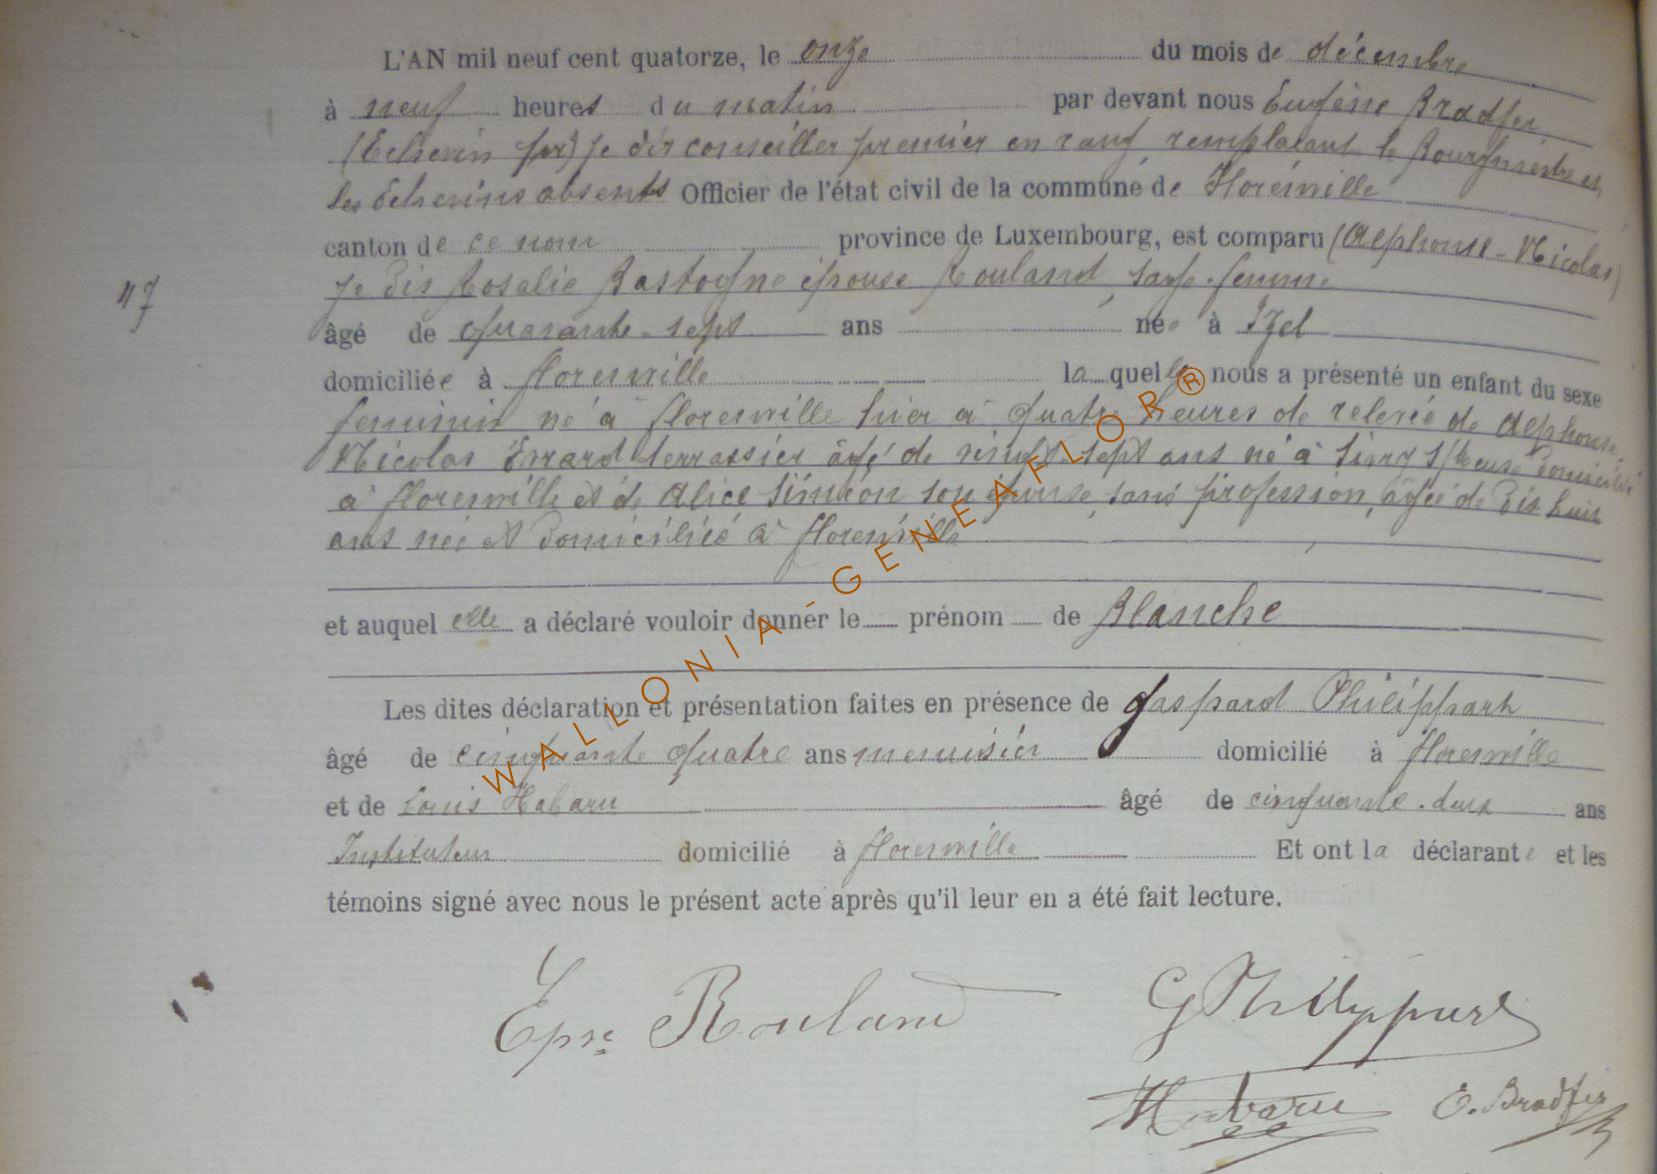 L'AN mil neuf cent quatorze, le onze du mois de décembre
à neuf heures du matin par devant nous Eugène Bradfer
(Echevin ff) je dis conseiller premier en rang remplaçant le Bourgmestre et
les Echevins absents Officier de l'état civil de la commune de Florenville
canton de ce nom province de Luxembourg, est comparu (Alphonse-Nicolas)
je dis Rosalie Bastogne épouse Rouland, sage-femme
47
âgé de quarante-sept ans née à Izel
domiciliée à Florenville laquelle nous a présenté un enfant du sexe
feminin né à Florenville hier à quatre heures de relevée de Alphonse
Nicolas Evrard terrassier âgé de vingt-sept ans né à domicilié
à Florenville et de Alice Siméon son épouse, sans profession, âgée de dix huit
ans née et domiciliée à Florenville
et auquel elle a déclaré vouloir donner le prénom de Blanche
Les dites déclaration et présentation faites en présence de Gaspard Philippart
âgé de cinquante quatre ans menuisier domicilié à Florenville
et de Louis Habaru âgé de cinquante-deux ans
Instituteur domicilié à Florenville Et ont la déclarante et les
témoins signé avec nous le présent acte après qu'il leur en a été fait lecture.
Epse Rouland G Philippart
Habaru E. Bradfer
WALLONIA-GENEAFLOR®